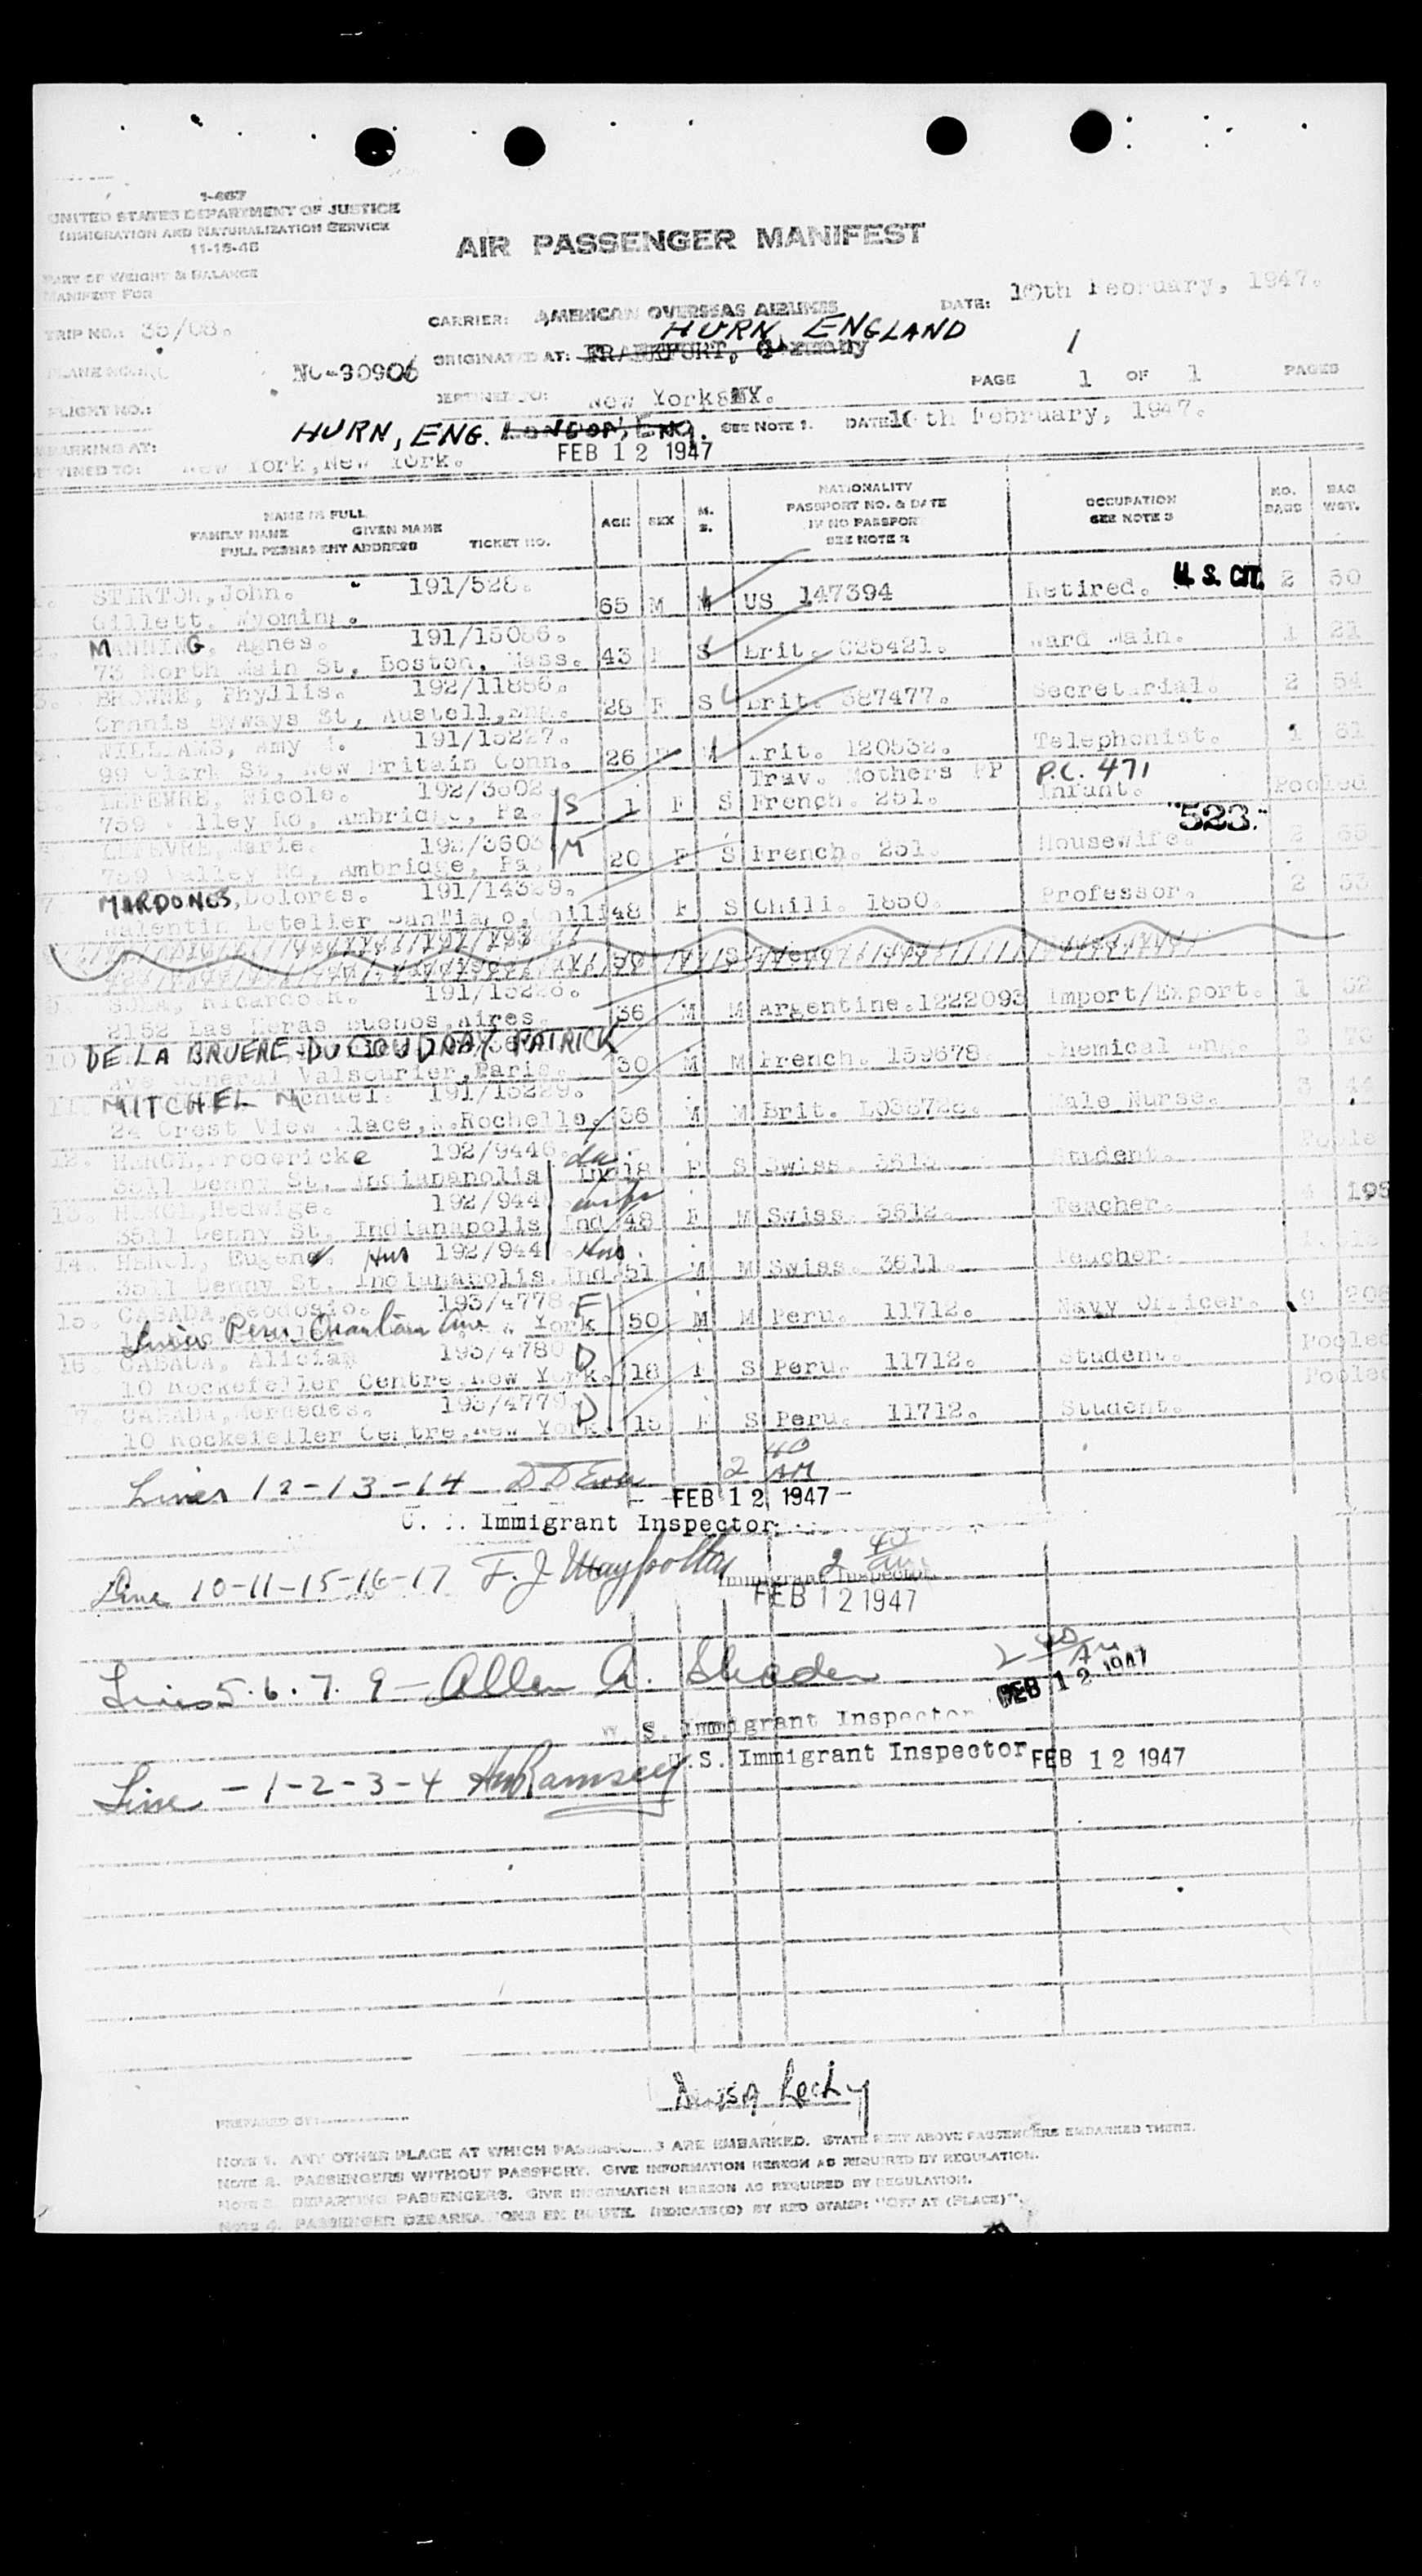 I-467
UNITED STATES DEPARTMENT OF JUSTICE
IMMIGRATION AND NATURALIZATION SERVICE
11-15-46
AIR PASSENGER MANIFEST
PART OF WEIGHT & BALANCE
MANIFEST FOR
DATE: 10th February, 1947.
TRIP NO.: 35/08.
CARRIER: AMERICAN OVERSEAS AIRLINES
HURN, ENGLAND
PLANE NO. NC-90906
ORIGINATED AT: FRANKFURT, Germany
1
PAGE 1 OF 1 PAGES
FLIGHT NO.:
DESTINED TO: New York, NY.
EMBARKING AT: HURN, ENG. London, Eng. SEE NOTE 1. DATE 10th February, 1947.
DESTINED TO: New York, New York. FEB 12 1947
NAME IN FULL
FAMILY NAME GIVEN NAME
FULL PERMANENT ADDRESS TICKET NO.
AGE SEX M. S.
NATIONALITY
PASSPORT NO. & DATE
IF NO PASSPORT
SEE NOTE 2
OCCUPATION
SEE NOTE 3
NO. BAGS BAG WGT.
1. STIRTON, John. 191/528. 65 M M US 147394 Retired. U.S. CIT. 2 50
Gillett, Wyoming.
2. MANNING, Agnes. 191/15086. 43 F S Brit. C25421. Ward Main. 1 21
73 North Main St, Boston, Mass.
3. BROWNE, Phyllis. 192/11856. 28 F S Brit. 587477. Secretarial. 2 54
Byways St, Austell, Eng.
4. WILLIAMS, Amy 191/15227. 26 F M Brit. 120532. Telephonist. 1 61
99 Clark St, New Britain Conn.
Trav. Mothers PP P.C. 471
5. LEFEVRE, Nicole. 192/3602. S 1 F S French. 251. Infant. Pooled
759 Valley Rd, Ambridge, Pa.
"523."
6. LEFEVRE, Marie. 192/3603 M 20 F S French. 251. Housewife. 2 66
759 Valley Rd, Ambridge, Pa.
7 MARDONES, Dolores. 191/14329. 48 F S Chili. 1850. Professor. 2 33
Valentin Letelier Santiago, Chili
9. SOLA, Ricardo R. 191/15228. 36 M M Argentine. 1222093 Import/Export. 1 52
2152 Las Heras Buenos, Aires.
10 DE LA BRUERE-DU COUDRAY PATRICK 30 M M French. 159678. Chemical Eng.
Ave General Paris.
11. MITCHEL Michael. 191/15229. 36 M M Brit. Male Nurse. 3 44
24 Crest View Place, N. Rochelle.
12. HERGL, Frodericke 192/9446. da 18 F S Swiss. 3613. Student. Poole
3511 Denny St, Indianapolis Ind
13. HERGL, Hedwige. 192/944 48 F M Swiss. 3612. Teacher. 4 195
3511 Denny St, Indianapolis Ind
14. HERGL, Eugene. Hus 192/944 Hus. 51 M M Swiss. 3611. Teacher.
3511 Denny St, Indianapolis Ind.
15. CABADA, Teodosio. 193/4778. F 50 M M Peru. 11712. Navy Officer. 9 206
Peru York
16. CABADA, Alicia 193/4780 D 18 F S Peru. 11712. Student. Pooled
10 Rockefeller Centre, New York.
17. CABADA, Mercedes. 193/4779. D 15 F S Peru. 11712. Student. Pooled
10 Rockefeller Centre, New York.
Lines 12-13-14 2 40 AM
FEB 12 1947
Immigrant Inspector
Line 10-11-15-16-17 F. J. 2 AM
Immigrant Inspector
FEB 12 1947
Lines 5.6.7.9 - Allen A. 2 40 AM
FEB 12 1947
U. S. Immigrant Inspector
U.S. Immigrant Inspector FEB 12 1947
Line - 1-2-3-4 Ramsey
PREPARED BY:
NOTE 1. ANY OTHER PLACE AT WHICH PASSENGERS ARE EMBARKED. STATE NEXT ABOVE PASSENGERS EMBARKED THERE.
NOTE 2. PASSENGERS WITHOUT PASSPORT. GIVE INFORMATION HEREON AS REQUIRED BY REGULATION.
NOTE 3. DEPARTING PASSENGERS. GIVE INFORMATION HEREON AS REQUIRED BY REGULATION.
NOTE 4. PASSENGER DEBARKATIONS EN ROUTE. INDICATE(D) BY RED STAMP: "OFF AT (PLACE)".